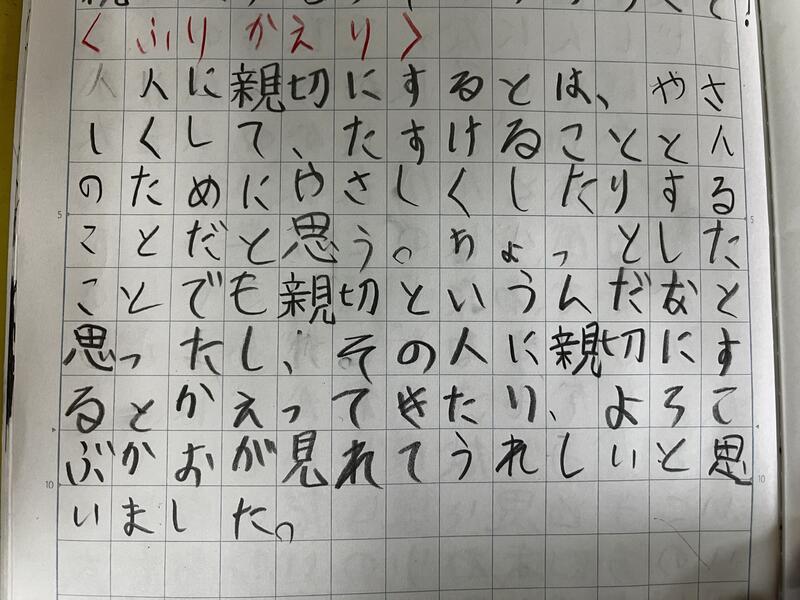 〈ふりかえり〉
人人に親切にするとは、やさ
しくして、たすけることと人
のためにやさしくしたりする
ことだと思う。ちょっとした
ことでも親切というんだなと
思ったし、その人に親切にす
るとかえってきたり、よろこ
ぶかおが見れてうれしいと思
いました。